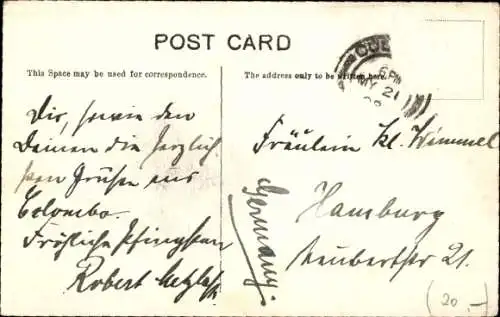 POST CARD
This Space may be used for correspondence.
The address only to be written here.
COL
6 PM
MY 21
Dir, sowie den
Deinen die herzlich-
sten Grüße aus
Colombo.
Fröhliche Pfingsten
Robert
Fräulein Kl. Wimmel
Hamburg
21.
Germany.
(20,-)